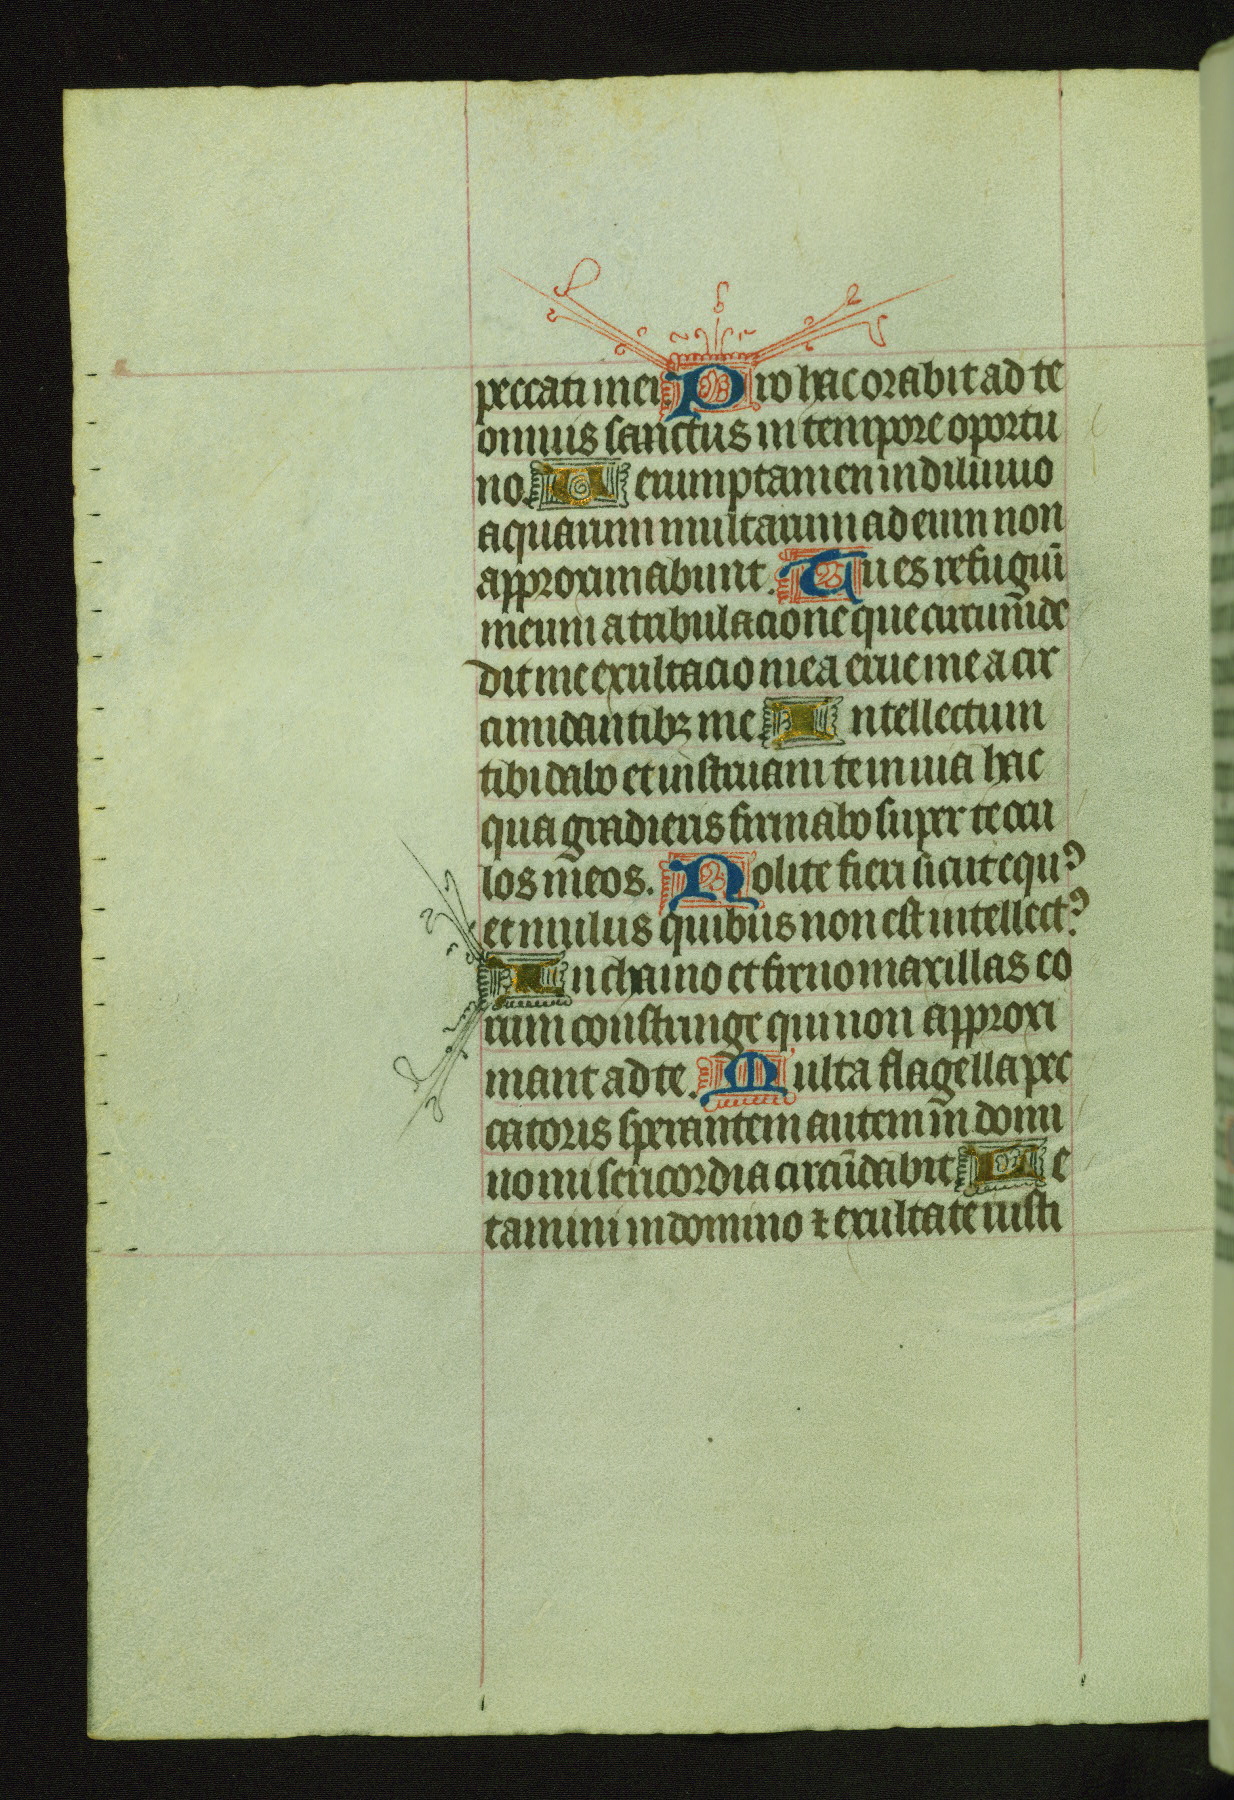 peccati mei. Pro hac orabit ad te
omnis sanctus in tempore oportu
no. Verumptamen in diluuio
aquarum multarum ad eum non
approximabunt. Tu es refugiū
meum a tribulacione que circum̄de
dit me exultacio mea erue me a cir
cumdantibꝫ me. Intellectum
tibi dabo et instruam te in uia hac
qua gradieris firmabo super te ocu
los meos. Nolite fieri sicut equꝰ
et mulus quibus non est intellectꝰ.
In chamo et freno maxillas eo
rum constringe qui non approxi
mant ad te. Multa flagella pec
catoris sperantem autem in domi
no misericordia circūdabit. Le
tamini in domino ⁊ exultate iusti